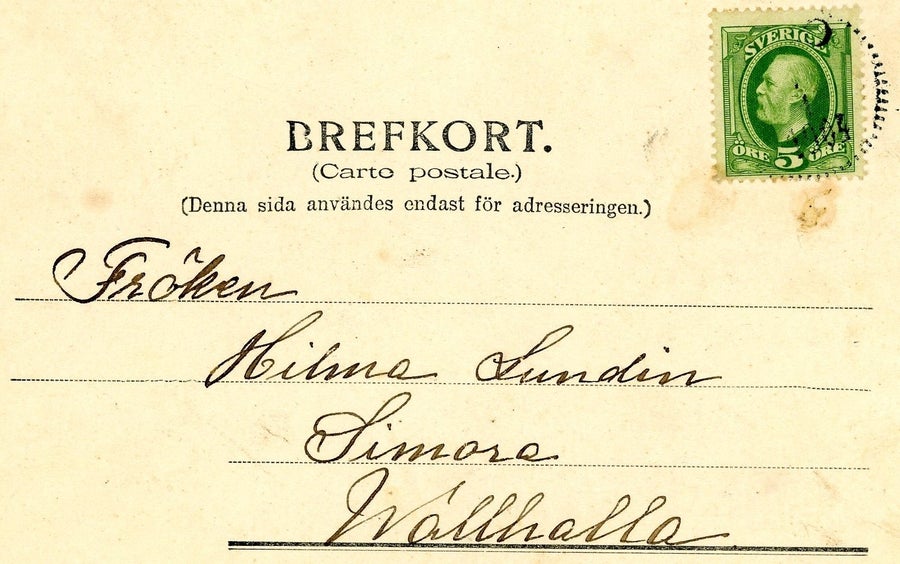 SVERIGE
ÖRE 5 ÖRE
BREFKORT.
(Carte postale.)
(Denna sida användes endast för adresseringen.)
Fröken
Hilma Lundin
Simora
Wallhalla